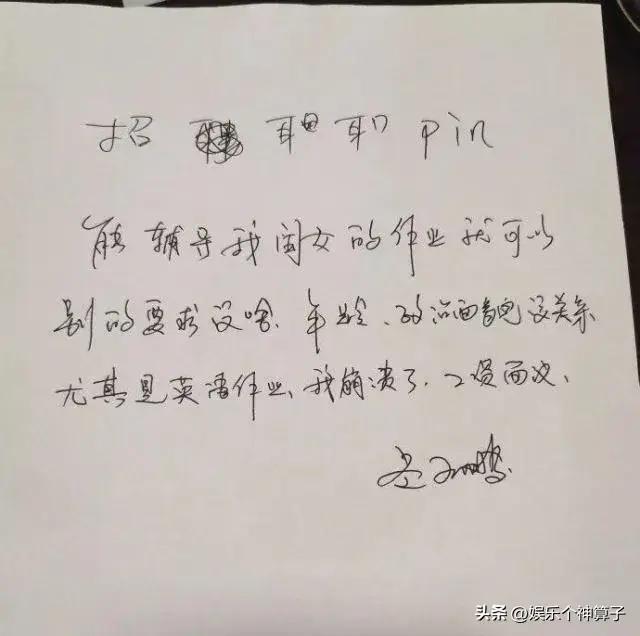 招 pin
能辅导我闺女的作业就可以
别的要求没啥、年龄、政治面貌没关系
尤其是英语作业、我崩溃了、工资面议、
头条 @娱乐个神算子